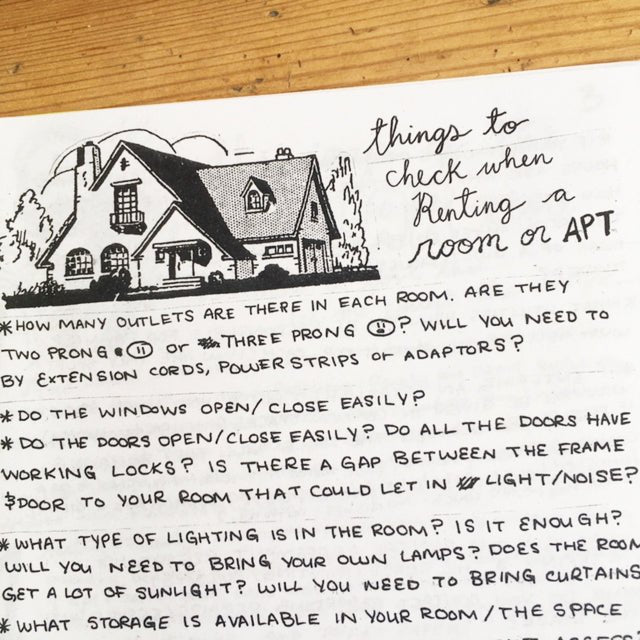 things to
check when
Renting a
room or APT
*HOW MANY OUTLETS ARE THERE IN EACH ROOM. ARE THEY
TWO PRONG or THREE PRONG ? WILL YOU NEED TO
BY EXTENSION CORDS, POWER STRIPS or ADAPTORS?
*DO THE WINDOWS OPEN/CLOSE EASILY?
*DO THE DOORS OPEN/CLOSE EASILY? DO ALL THE DOORS HAVE
WORKING LOCKS? IS THERE A GAP BETWEEN THE FRAME
& DOOR TO YOUR ROOM THAT COULD LET IN LIGHT/NOISE?
*WHAT TYPE OF LIGHTING IS IN THE ROOM? IS IT ENOUGH?
WILL YOU NEED TO BRING YOUR OWN LAMPS? DOES THE ROOM
GET A LOT OF SUNLIGHT? WILL YOU NEED TO BRING CURTAINS
*WHAT STORAGE IS AVAILABLE IN YOUR ROOM/THE SPACE